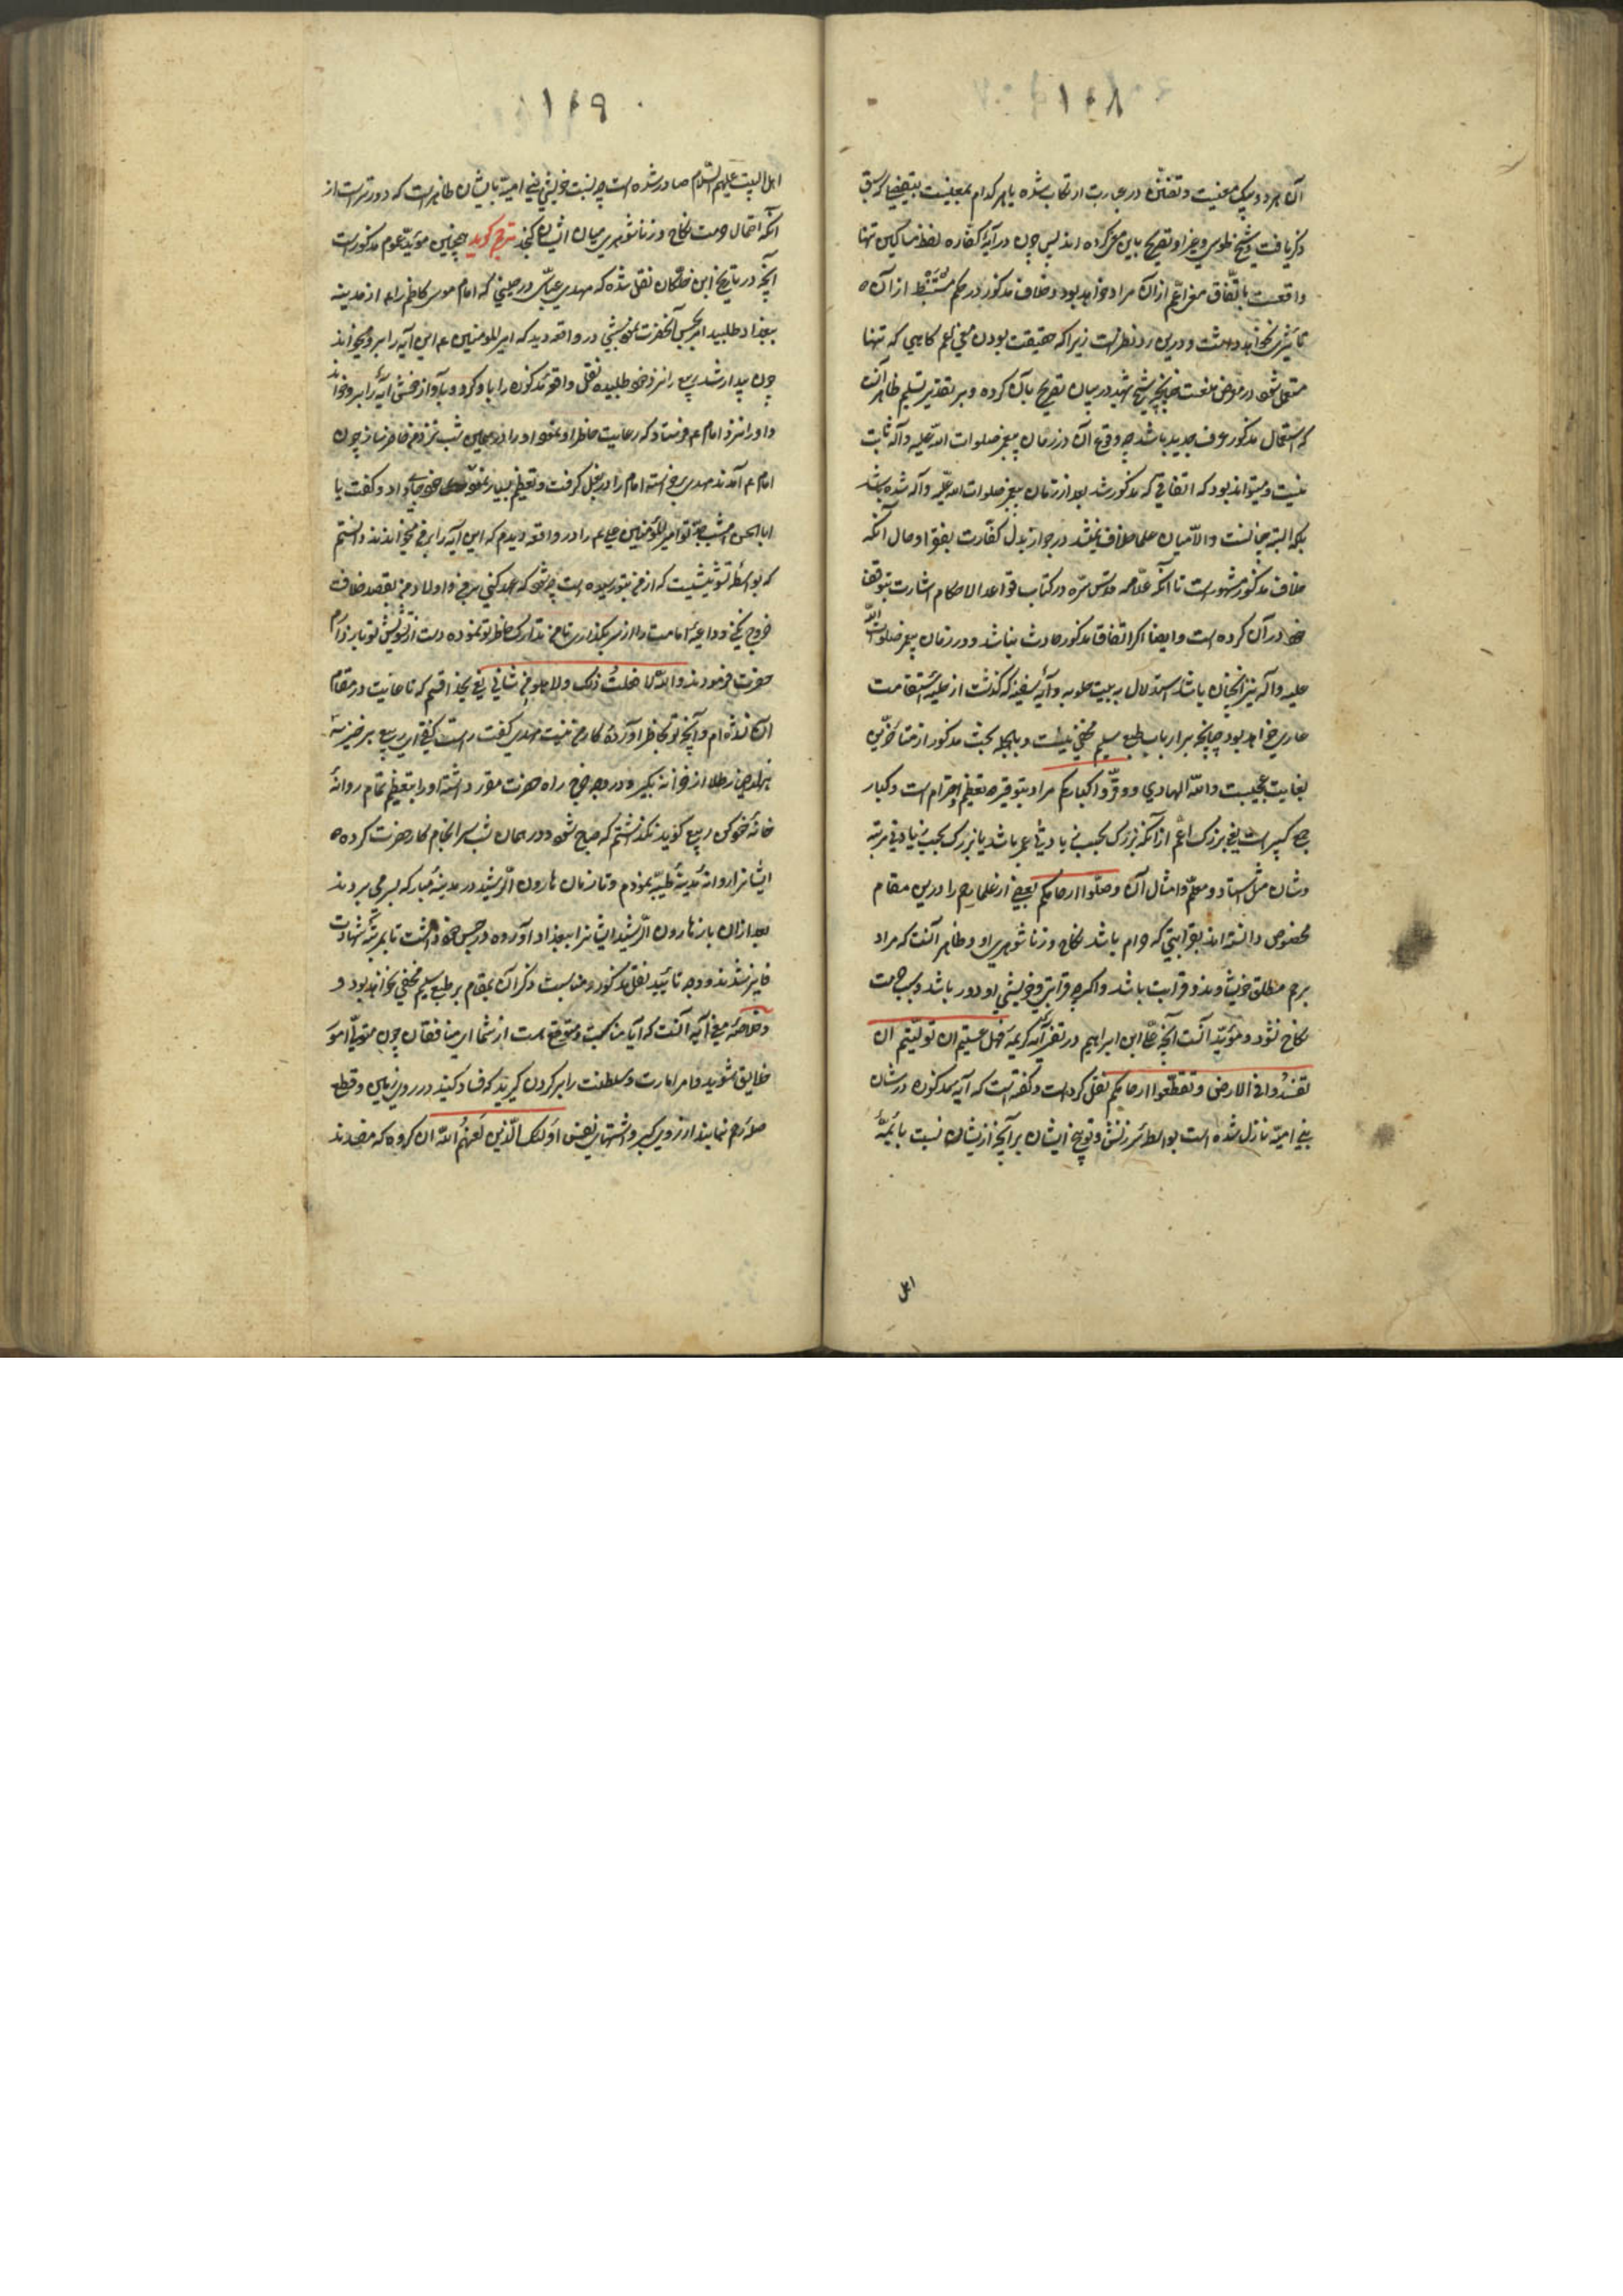 ۱۱۸
آن هر دو بیک معنیست و تفنن در عبارت ارتکاب شده یا هر کدام بمعنیست
ذکر یافت و شیخ طوسی و غیر او تصریح باین معنی کرده اند پس چون در آیهٔ کفاره لفظ مساکین تنها
واقعست باتفاق معنی اعم از آن مراد خواهد بود و خلاف مذکور در حکم مستنبط از آن
تأثیری نخواهد داشت و درین رد نظر است زیرا که حقیقت بودن معنی اعم کاهی که تنها
مستعمل شود در معرض منعست چنانچه شیخ شهید در بیان تصریح بآن کرده و بر تقدیر تسلیم ظاهر آنست
که استعمال مذکور عرف جدید باشد چه وقوع آن در زمان پیغمبر صلوات الله علیه و آله ثابت
نیست و میتواند بود که اتفاقی که مذکور شد بعد از زمان پیغمبر صلوات الله علیه و آله شده باشد
بلکه البته چنانست والا میان علما خلاف نمیشد در جواز بذل کفارت بفقرا و حال آنکه
خلاف مذکور مشهور است تا آنکه علامه قدس سره در کتاب قواعد الاحکام اشارت بتوقف
خود در آن کرده است و ایضا اکر اتفاق مذکور حادث نباشد و در زمان پیغمبر صلوات الله
علیه و آله نیز آنچنان باشد استدلال به بیت و آیهٔ سفینه که گذشت از حلیهٔ استقامت
عاری خواهد بود چنانچه بر ارباب طبع سلیم مخفی نیست و بالجمله بحث مذکور از متأخرین
بغایت عجیبست والله الهادی ووقروا کبارکم مراد بتوقیر تعظیم و احترام است و کبار
جمع کبیر است یعنی بزرک اعم از آنکه بزرک بحسب زیادتی عمر باشد یا بزرک بحسب زیادتی مرتبه
و شان مثل استاد و معلم و امثال آن وصلوا ارحامکم بعضی از علما رحم را درین مقام
مخصوص دانسته اند بقرابتی که حرام باشد نکاح و زناشوهری او و ظاهر آنست که مراد
برحم مطلق خویشاوند و قرابت باشد و اکرچه قرابتی و خویشی او دور باشد و سبب حرمت
نکاح نشود و مؤید آنست آنچه علی ابن ابراهیم در تفسیر آیه کریمه فهل عسیتم ان تولیتم ان
تفسدوا فی الارض و تقطعوا ارحامکم نقل کرده است و گفته است که آیه مذکوره در شان
بنی امیه نازل شده است بواسطهٔ سرزنش و توبیخ ایشان بر آنچه از ایشان نسبت بائمهٔ
اهل
۱۱۹
اهل البیت علیهم السلام صادر شده است چه نسبت خویشی بنی امیه بایشان ظاهر است که دورتر است از
آنکه احتمال حرمت نکاح و زناشوهری میان ایشان کنجد مترجم کوید همچنین مؤید عموم مذکور است
آنچه در تاریخ ابن خلکان نقل شده که مهدی عباسی در حینی که امام موسی کاظم را ع از مدینه
ببغداد طلبید امر بحبس آنحضرت نمود شبی در واقعه دید که امیر المومنین ع این آیه را برو میخواند
چون بیدار شد ربیع را نزد خود طلبیده نقل واقعهٔ مذکوره را با او کرد و بآواز خوش آیه را برو خواند
و او را نزد امام ع فرستاد که رعایت خاطر او نموده او را در همین شب نزد من حاضر ساز چون
امام ع آمدند مهدی برخاسته امام را در بغل گرفت و تعظیم بسیار نموده جای داد و گفت یا
ابا الحسن امشب جد تو امیر المؤمنین علی ع را در واقعه دیدم که این آیه را بر من میخواندند دانستم
که بواسطهٔ تشویشیست که از من بتو رسیده است چه شود که عهد کنی که بر من و اولاد من بقصد خلافت
خروج نکنی و داعیهٔ امامت را از سر بگذاری تا من تدارک خاطر تو نموده دست از تشویش تو باز دارم
حضرت فرمودند والله لا فعلت ذلک ولا هو من شانی یعنی بخدا قسم که تا غایت در مقام
آن نشده ام و آنچه تو بخاطر آوردهٔ کار من نیست مهدی گفت راست گفتی ای ربیع برخیز سه
هزار دینار طلا از خزانه بگیر و در وجه خرج راه حضرت مقرر داشته او را بتعظیم تمام روانهٔ
خانه خود کن ربیع گوید نگذاشتم که صبح شود و در همان شب سرانجام کار حضرت کرده
ایشانرا روانهٔ مدینهٔ طیبه نمودم و تا زمان هارون الرشید در مدینهٔ مبارکه بسر می بردند
بعد از آن باز هارون الرشید ایشانرا ببغداد آورده در حبس خود داشت تا بمرتبهٔ شهادت
فایز شدند و وجه تأیید نقل مذکور و مناسبت ذکر آن بمقام بر طبع سلیم مخفی نخواهد بود و
و خلاصهٔ معنی آیه آنست که آیا مناسب و متوقع است از شما ای منافقان چون متولی امور
خلایق شوید و امر امارت و سلطنت را بر گردن گیرید که فساد کنید در روی زمین و قطع
صلهٔ رحم نمایید از روی کبر و اشتهای نفس اولئک الذین لعنهم الله آن گروه که مفسدند